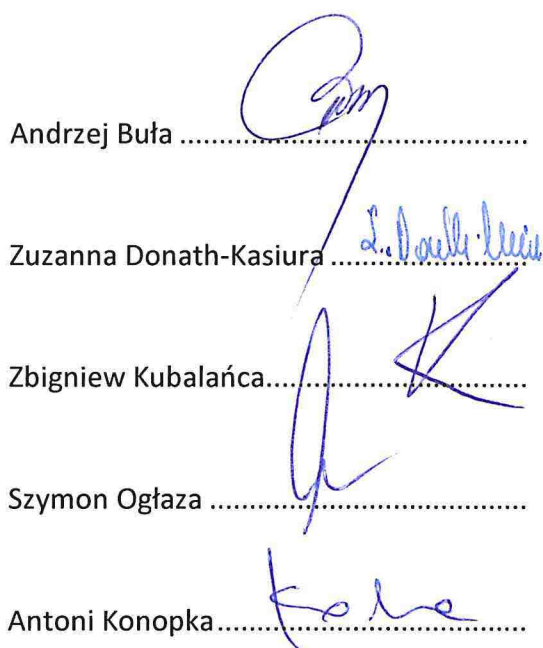 Andrzej Buła ..........................................
Zuzanna Donath-Kasiura ........................
Zbigniew Kubalańca................................
Szymon Ogłaza ......................................
Antoni Konopka.....................................